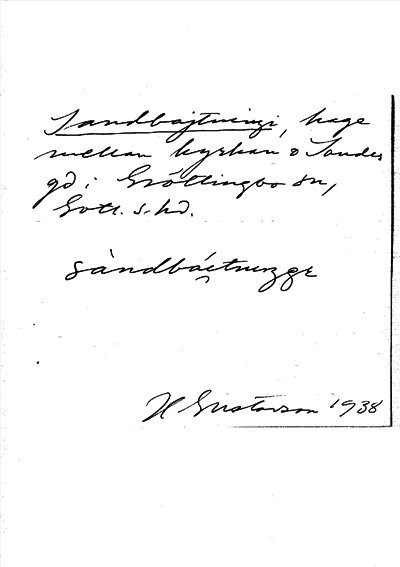 Sandbajtningi, hage
mellan kyrkan o Sandes
gd i Grötlingbo sn,
Gotl. s. hd.
H Gustavson 1938